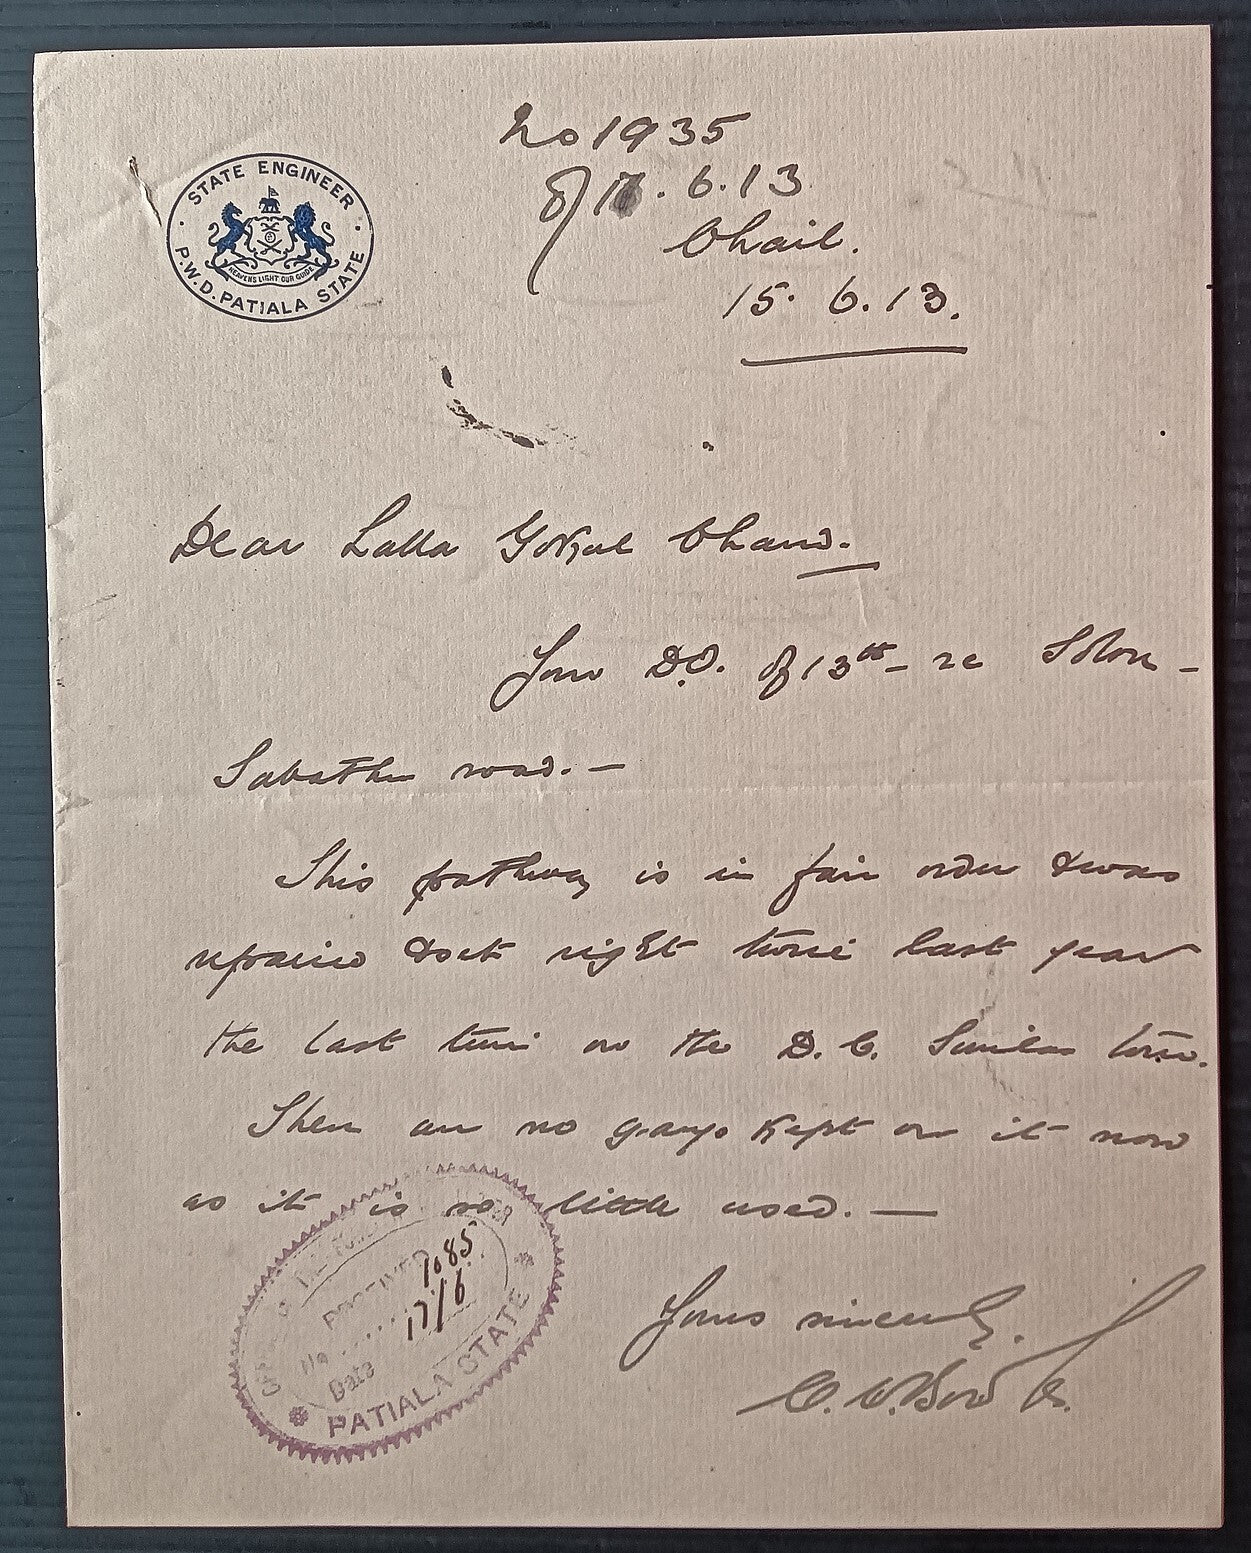 STATE ENGINEER
HEAVENS LIGHT OUR GUIDE
P.W.D. PATIALA STATE
No 1935
of 1 . 6. 13
Chail.
15. 6. 13.
Dear Lalla Gokal Chand.
Your D.O. of 13th - re Solon -
Sabathu road. -
This pathway is in fair order & was
repaired & set right twice last year
the last time on the D. C. Simlas tour.
There are no gangs kept on it now
as it is so little used. —
Yours sincerely.
RECEIVED
No 1085
Date 17/6
PATIALA STATE